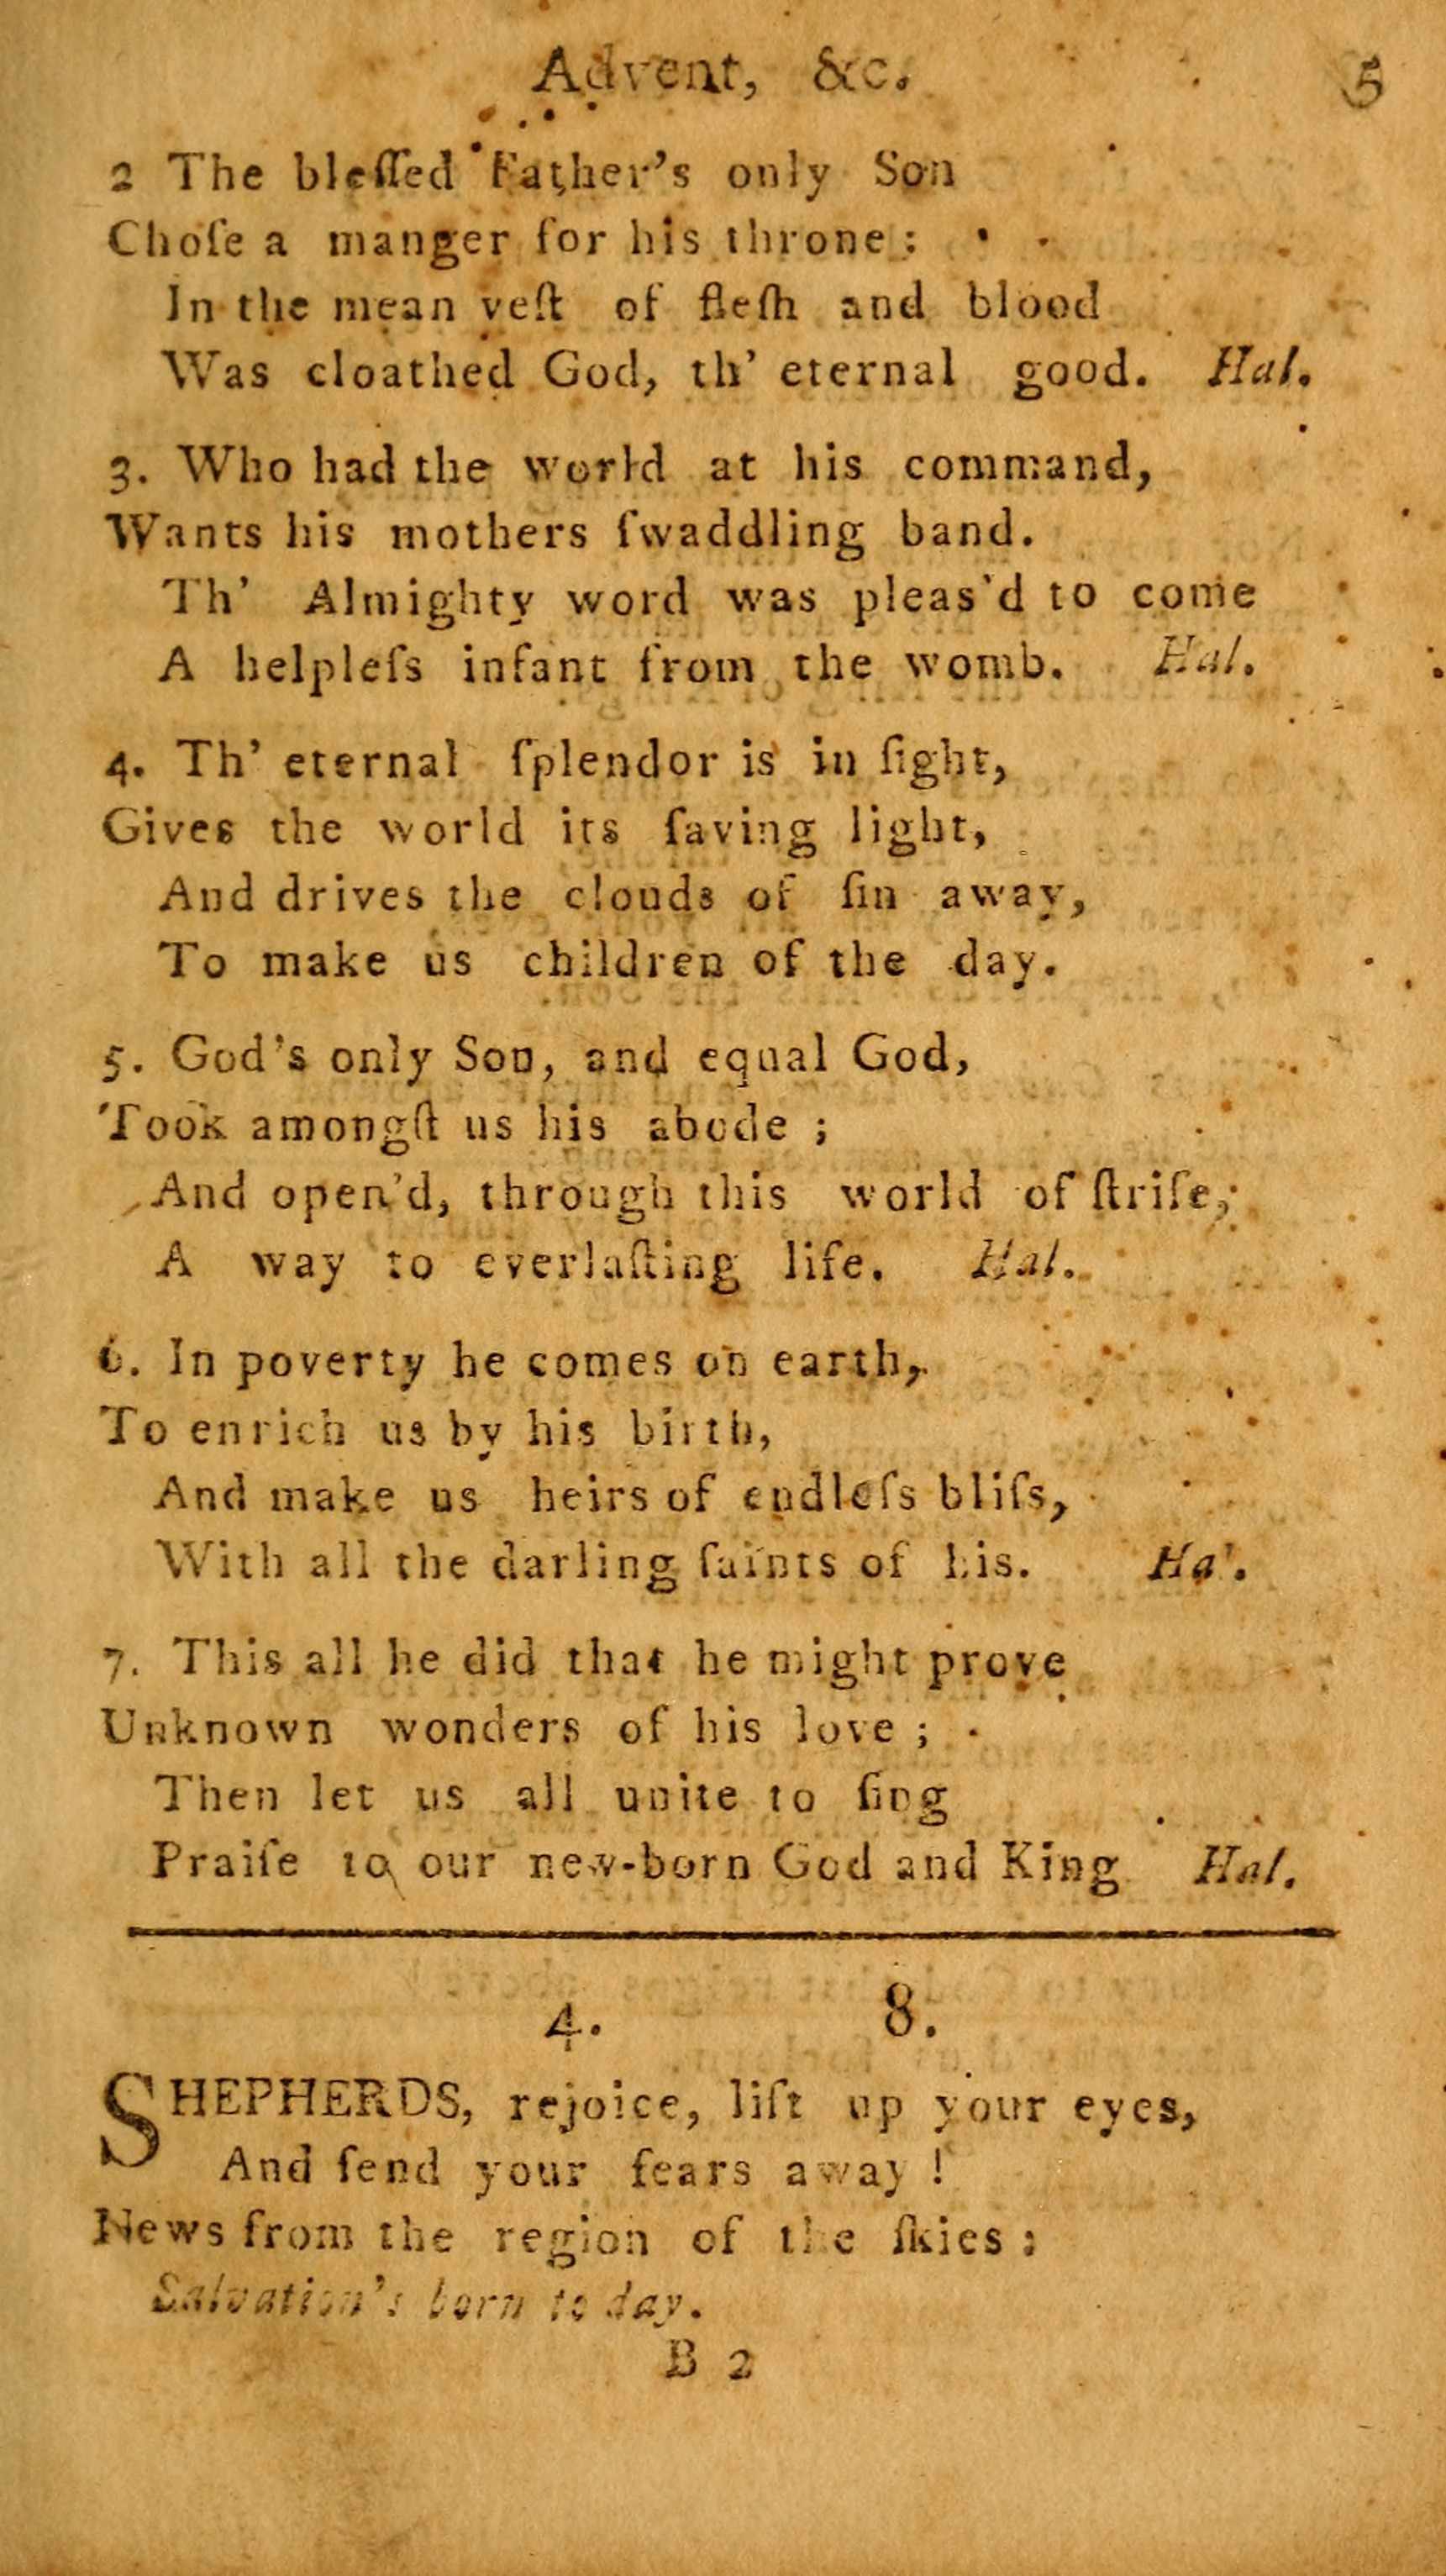 Advent, &c. 5
2 The bleſſed Father's only Son
Choſe a manger for his throne:
In the mean veſt of fleſh and blood
Was cloathed God, th' eternal good. Hal.
3. Who had the world at his command,
Wants his mothers ſwaddling band.
Th' Almighty word was pleas'd to come
A helpleſs infant from the womb. Hal.
4. Th' eternal ſplendor is in ſight,
Gives the world its ſaving light,
And drives the clouds of ſin away,
To make us children of the day.
5. God's only Son, and equal God,
Took amongſt us his abode ;
And open'd, through this world of ſtrife,
A way to everlaſting life. Hal.
6. In poverty he comes on earth,
To enrich us by his birth,
And make us heirs of endleſs bliſs,
With all the darling ſaints of his. Hal.
7. This all he did that he might prove
Unknown wonders of his love ;
Then let us all unite to ſing
Praiſe to our new-born God and King Hal.
4. 8.
SHEPHERDS, rejoice, lift up your eyes,
And ſend your fears away !
News from the region of the ſkies :
Salvation's born to day.
B 2